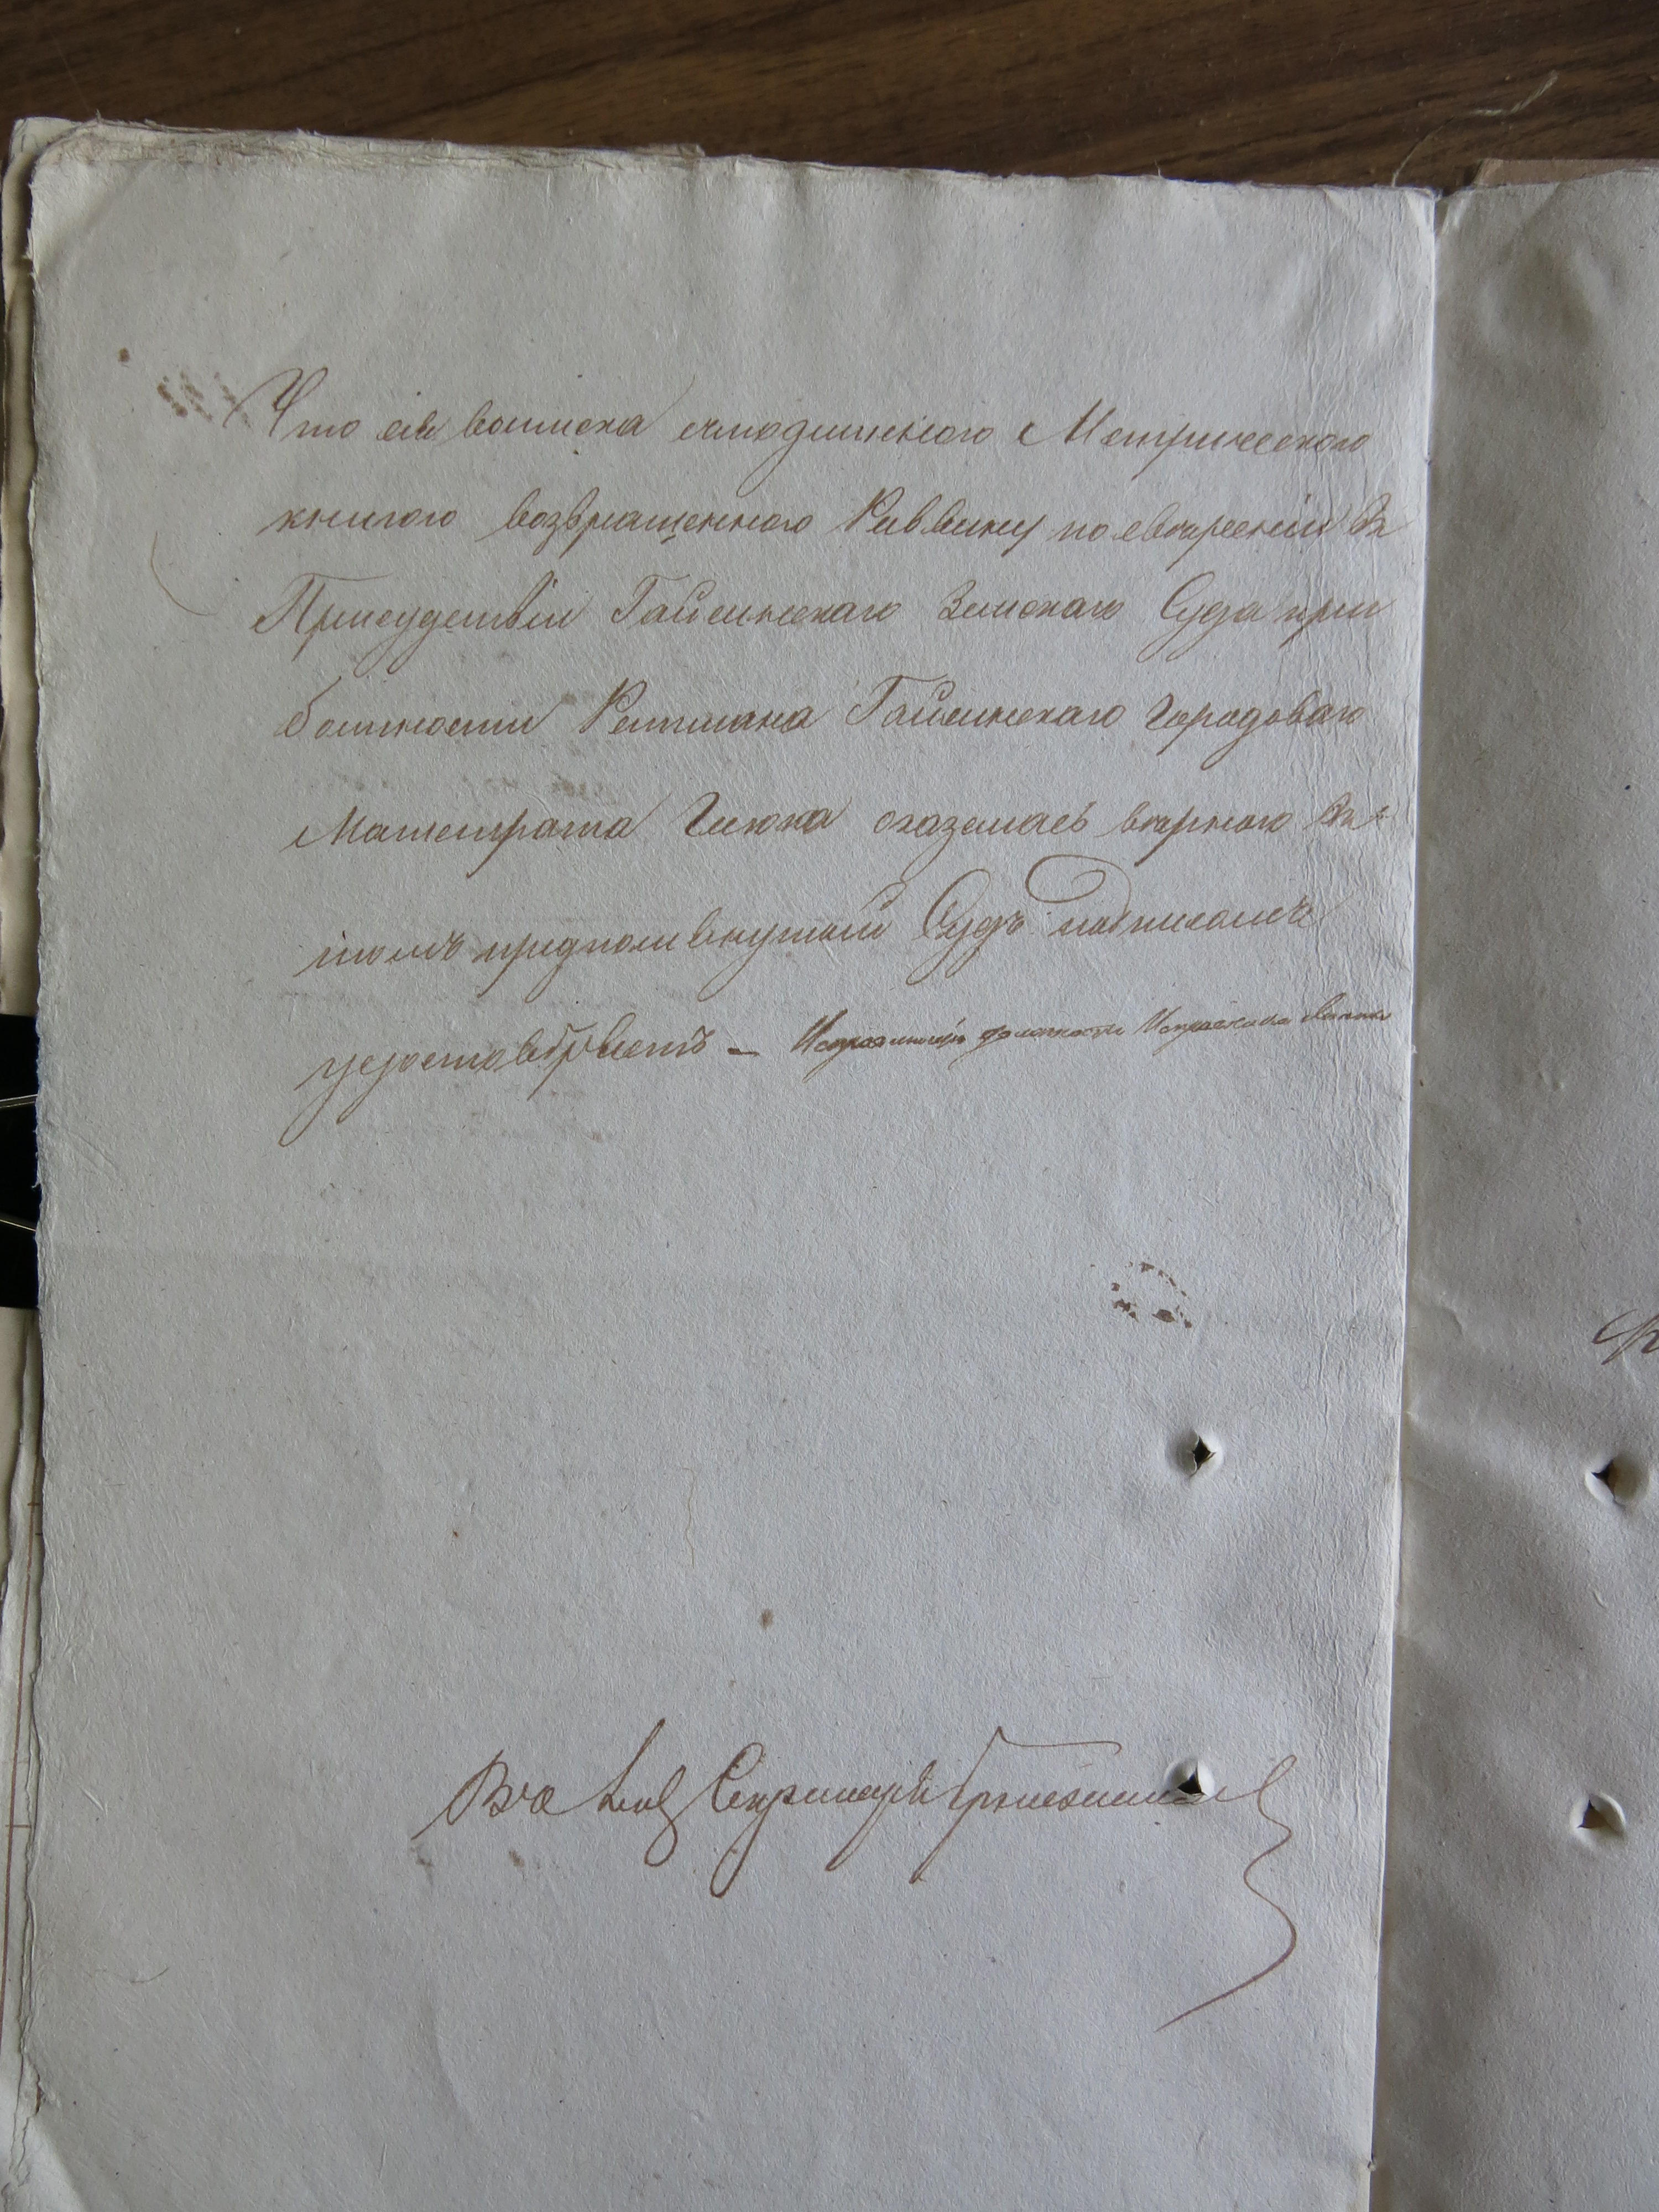 Что сія выписка сподлинною Метрическою
книгою возвращенною Раввину по свѣреніи въ
Присудствіи Гайсинскаго Земскаго Суда при
бытности Ратмана Гайсинскаго Городоваго
Магистрата оказалась вѣрною въ
томъ Судъ подписомъ
удостовѣряетъ – Исправляющій должность Исправника
Секретарь